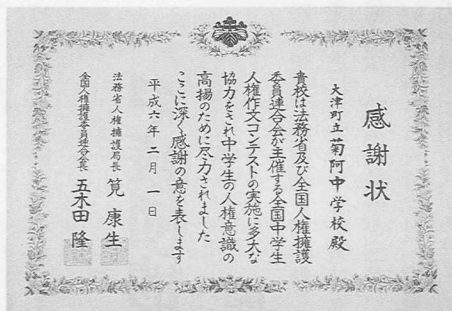 感謝状
大津町立菊阿中学校殿
貴校は法務省及び全国人権擁護
委員連合会が主催する全国中学生
人権作文コンテストの実施に多大な
協力をされ中学生の人権意識の
高揚のために尽力されました
ここに深く感謝の意を表します
平成六年二月一日
法務省人権擁護局長 筧康生
全国人権擁護委員連合会長 五木田隆